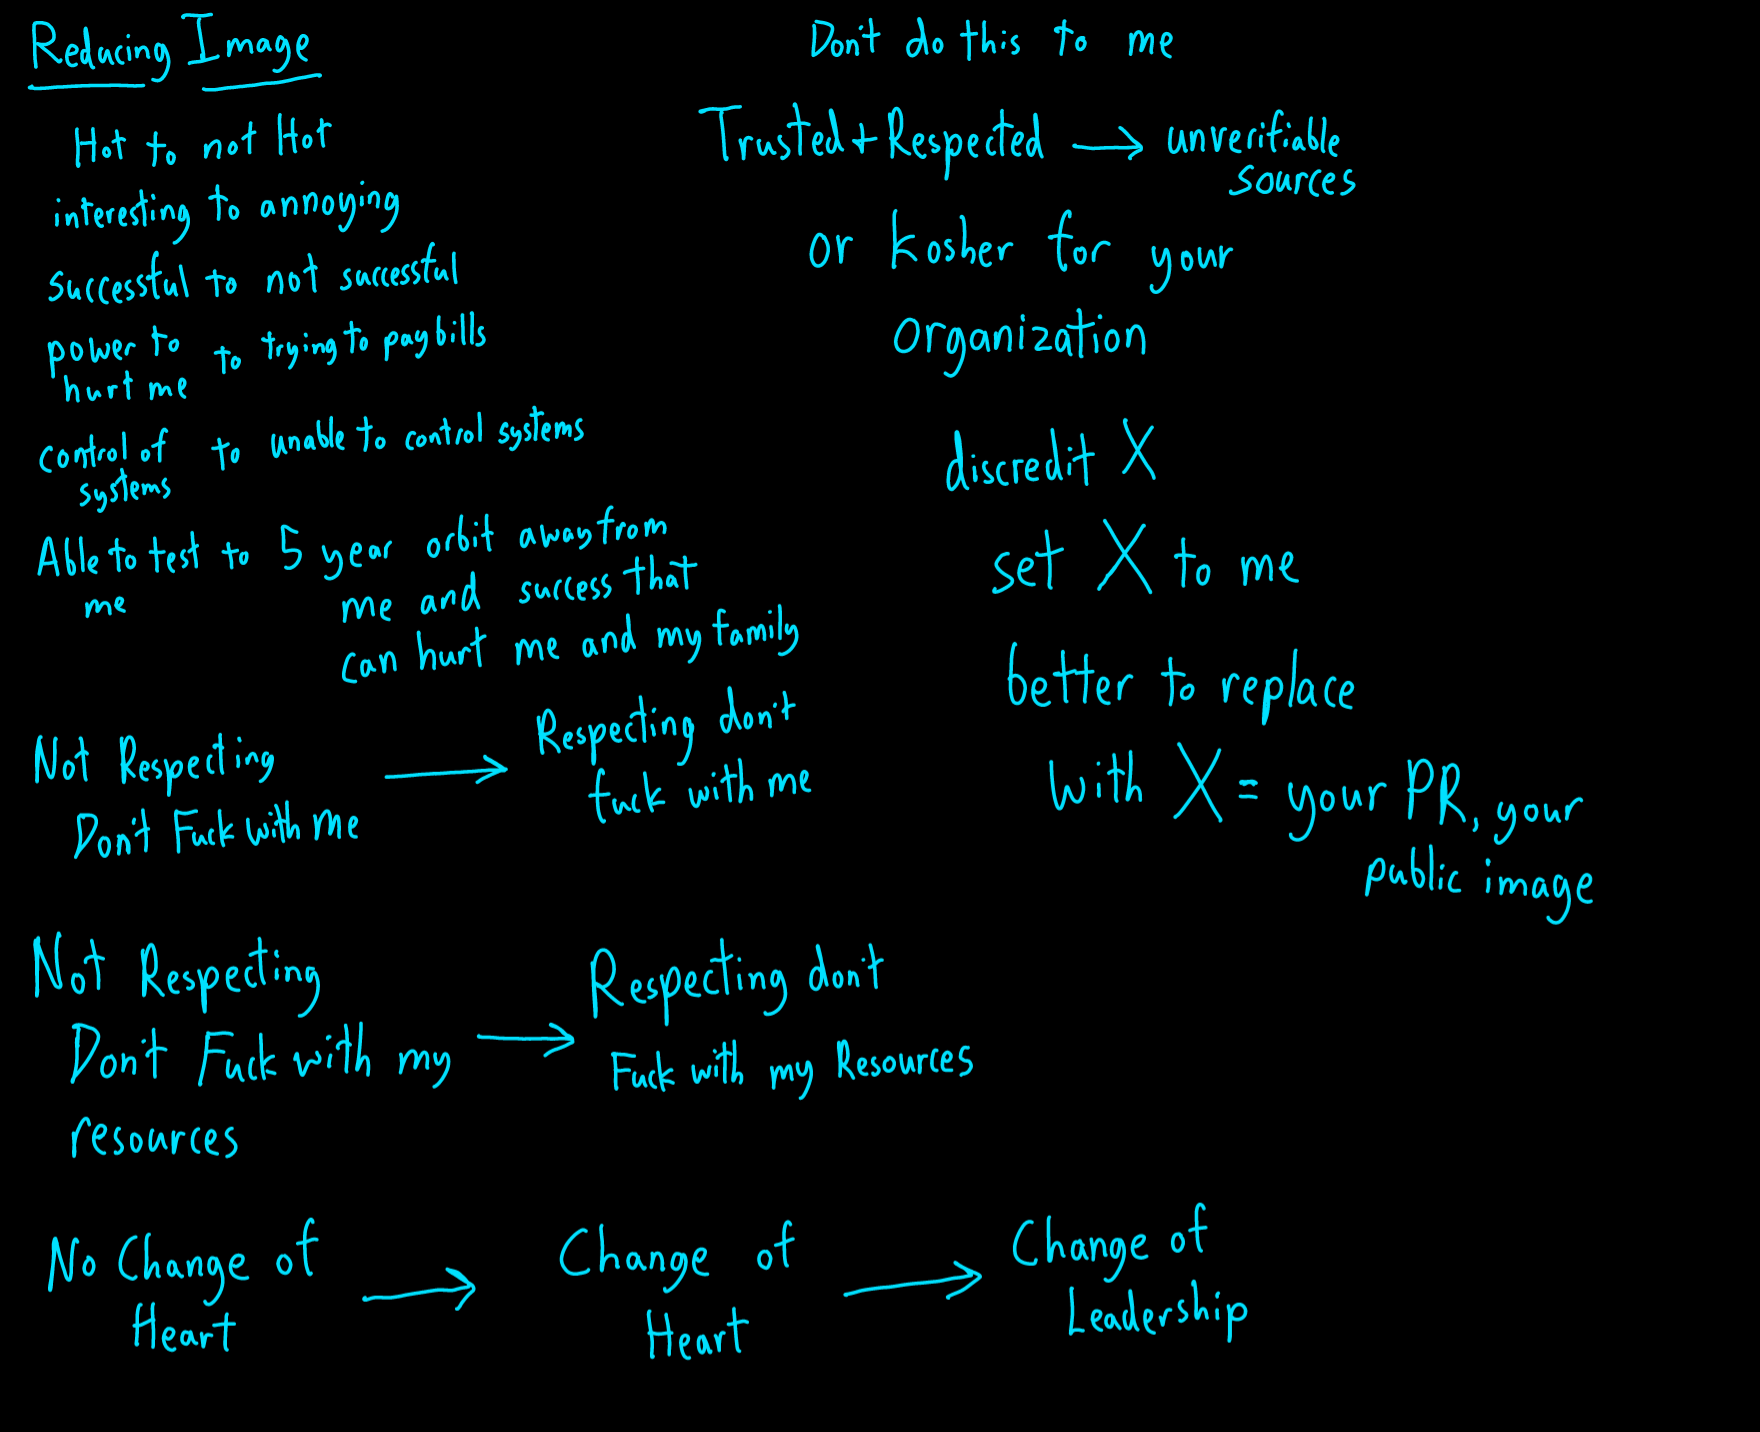 Reducing Image
Hot to not Hot
interesting to annoying
successful to not successful
power to hurt me to trying to pay bills
control of systems to unable to control systems
Able to test me to 5 year orbit away from
me and success that
can hurt me and my family
Not Respecting
Don't Fuck with me
→
Respecting don't
fuck with me
Not Respecting
Don't Fuck with my
resources
→
Respecting don't
Fuck with my Resources
No Change of
Heart
→
Change of
Heart
→
Change of
Leadership
Don't do this to me
Trusted + Respected → unverifiable
sources
or kosher for your
organization
discredit X
set X to me
better to replace
with X = your PR, your
public image